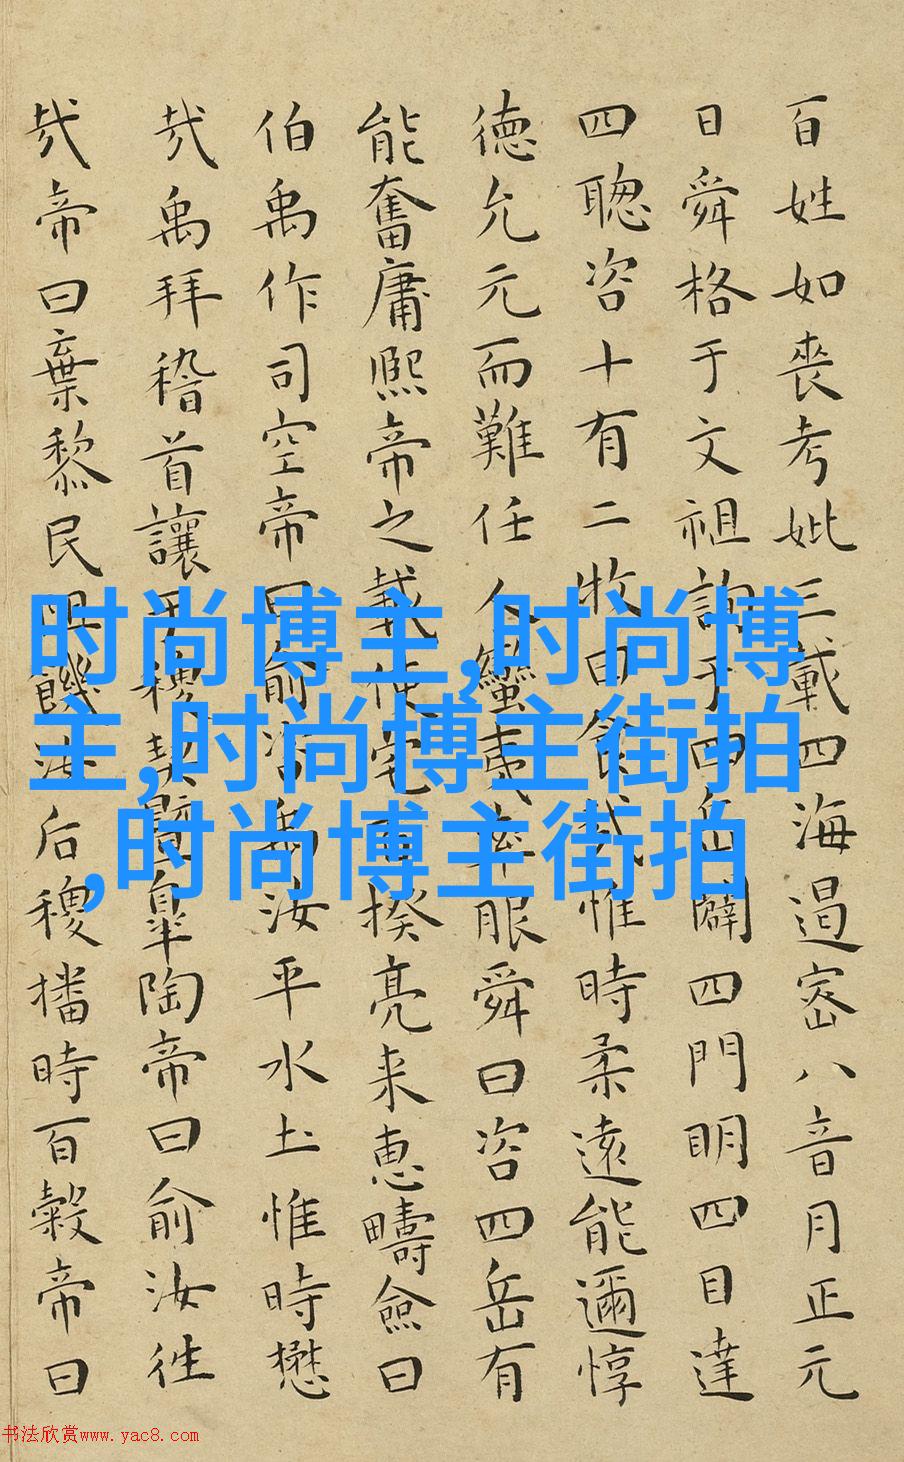 百姓如喪考妣三載四海遏密八音月正元
日舜格于文祖詢于四岳闢四門明四目達
四聦咨十有二牧曰食哉惟時柔遠能邇惇
徳允元而難任人蠻夷率服舜曰咨四岳有
能奮庸熈帝之載使宅百揆亮来恵疇僉曰
伯禹作司空帝曰俞咨禹汝平水土惟時懋
哉禹拜稽首讓于稷契曁皐陶帝曰俞汝徃
哉帝曰棄黎民阻饑汝后稷播時百穀帝曰
时尚博主,时尚博
主,时尚博主街拍
,时尚博主街拍
书法欣赏www.yac8.com